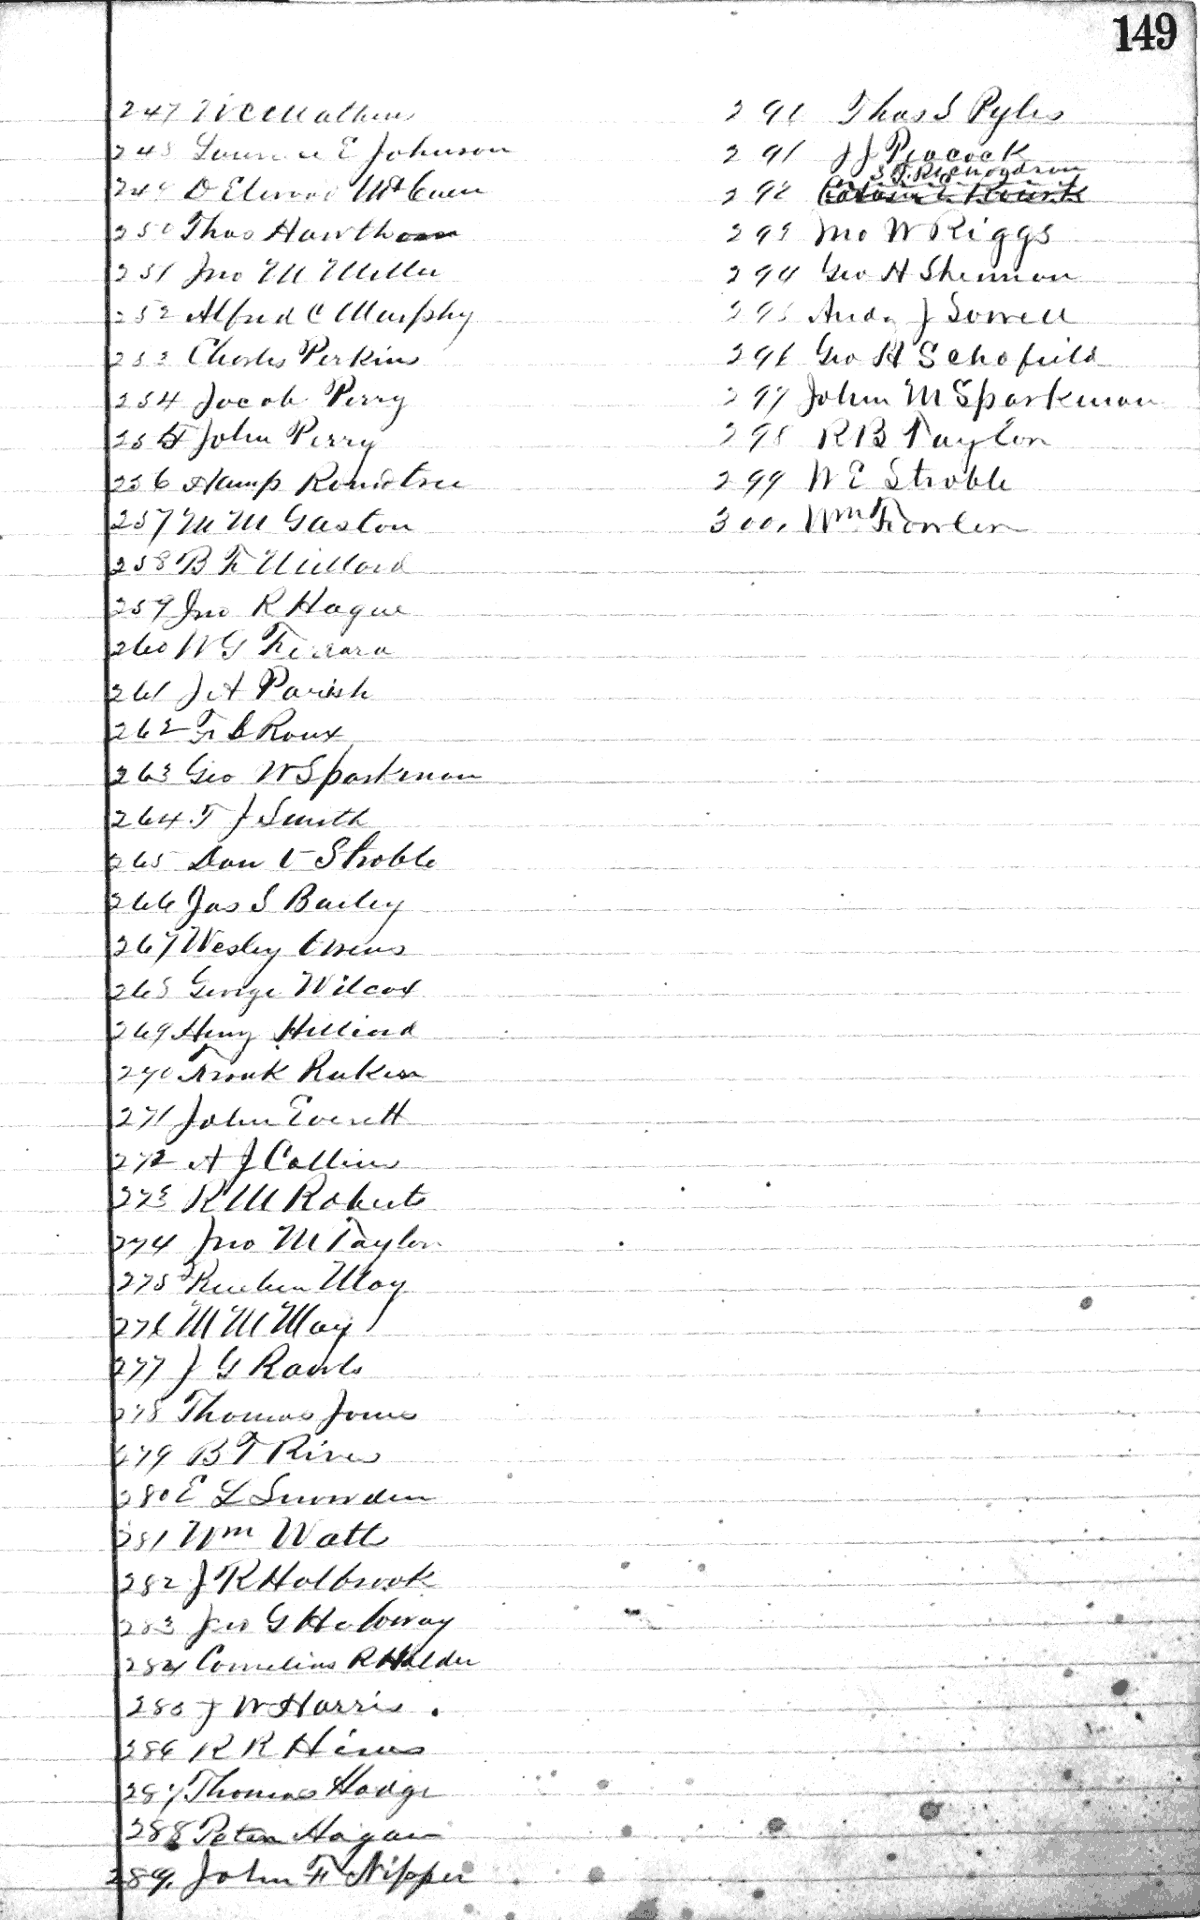 149
247 W C Mathews
248 Lawrence E Johnson
249 D Elwood McEwen
250 Thos Hawthorn
251 Jno M Miller
252 Alfred C Murphy
253 Charles Perkins
254 Jacob Perry
255 John Perry
256 Hamp Roundtree
257 M M Gaston
258 B F Millard
259 Jno R Hague
260 W G
261 J A Parish
262 Roux
263 Geo W Sparkman
264 T J Smith
265 Dan Stroble
266 Jas S Bailey
267 Wesley Owens
268 George Wilcox
269 Henry Hilliard
270 Frank
271 John Everett
272 A J Collins
273 R M Roberts
274 Jno M Taylor
275 Reuben May
276 M M May
277 J G Rawls
278 Thomas Jones
279 B T Rives
280 E L Snowden
281 Wm Watts
282 J R Holbrook
283 G Holoway
284 Cornelius R Holder
285 J W Harris
286 R R Hines
287 Thomas Hodge
288 Peter Hagan
289. John F Nipper
290 Thos S Pyles
291 J J Peacock
292
293 Jno W Riggs
294 Geo H Shennan
295 Andr J Sowell
296 Geo H Schofield
297 John M Sparkman
298 R B Taylor
299 W E Stroble
300. Wm Fowler